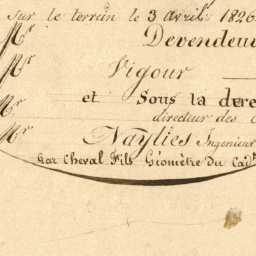 sur le terrain le 3 Avril 1826
Mr Devendeu
Mr Vigour
Mr et Sous la dire
directeur des
Mr Naylies Ingenieur
Par Cheval Fils Géomètre Du Cad